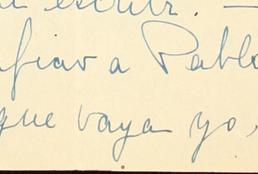 escribir. —
fiar a Pablo
que vaya yo,